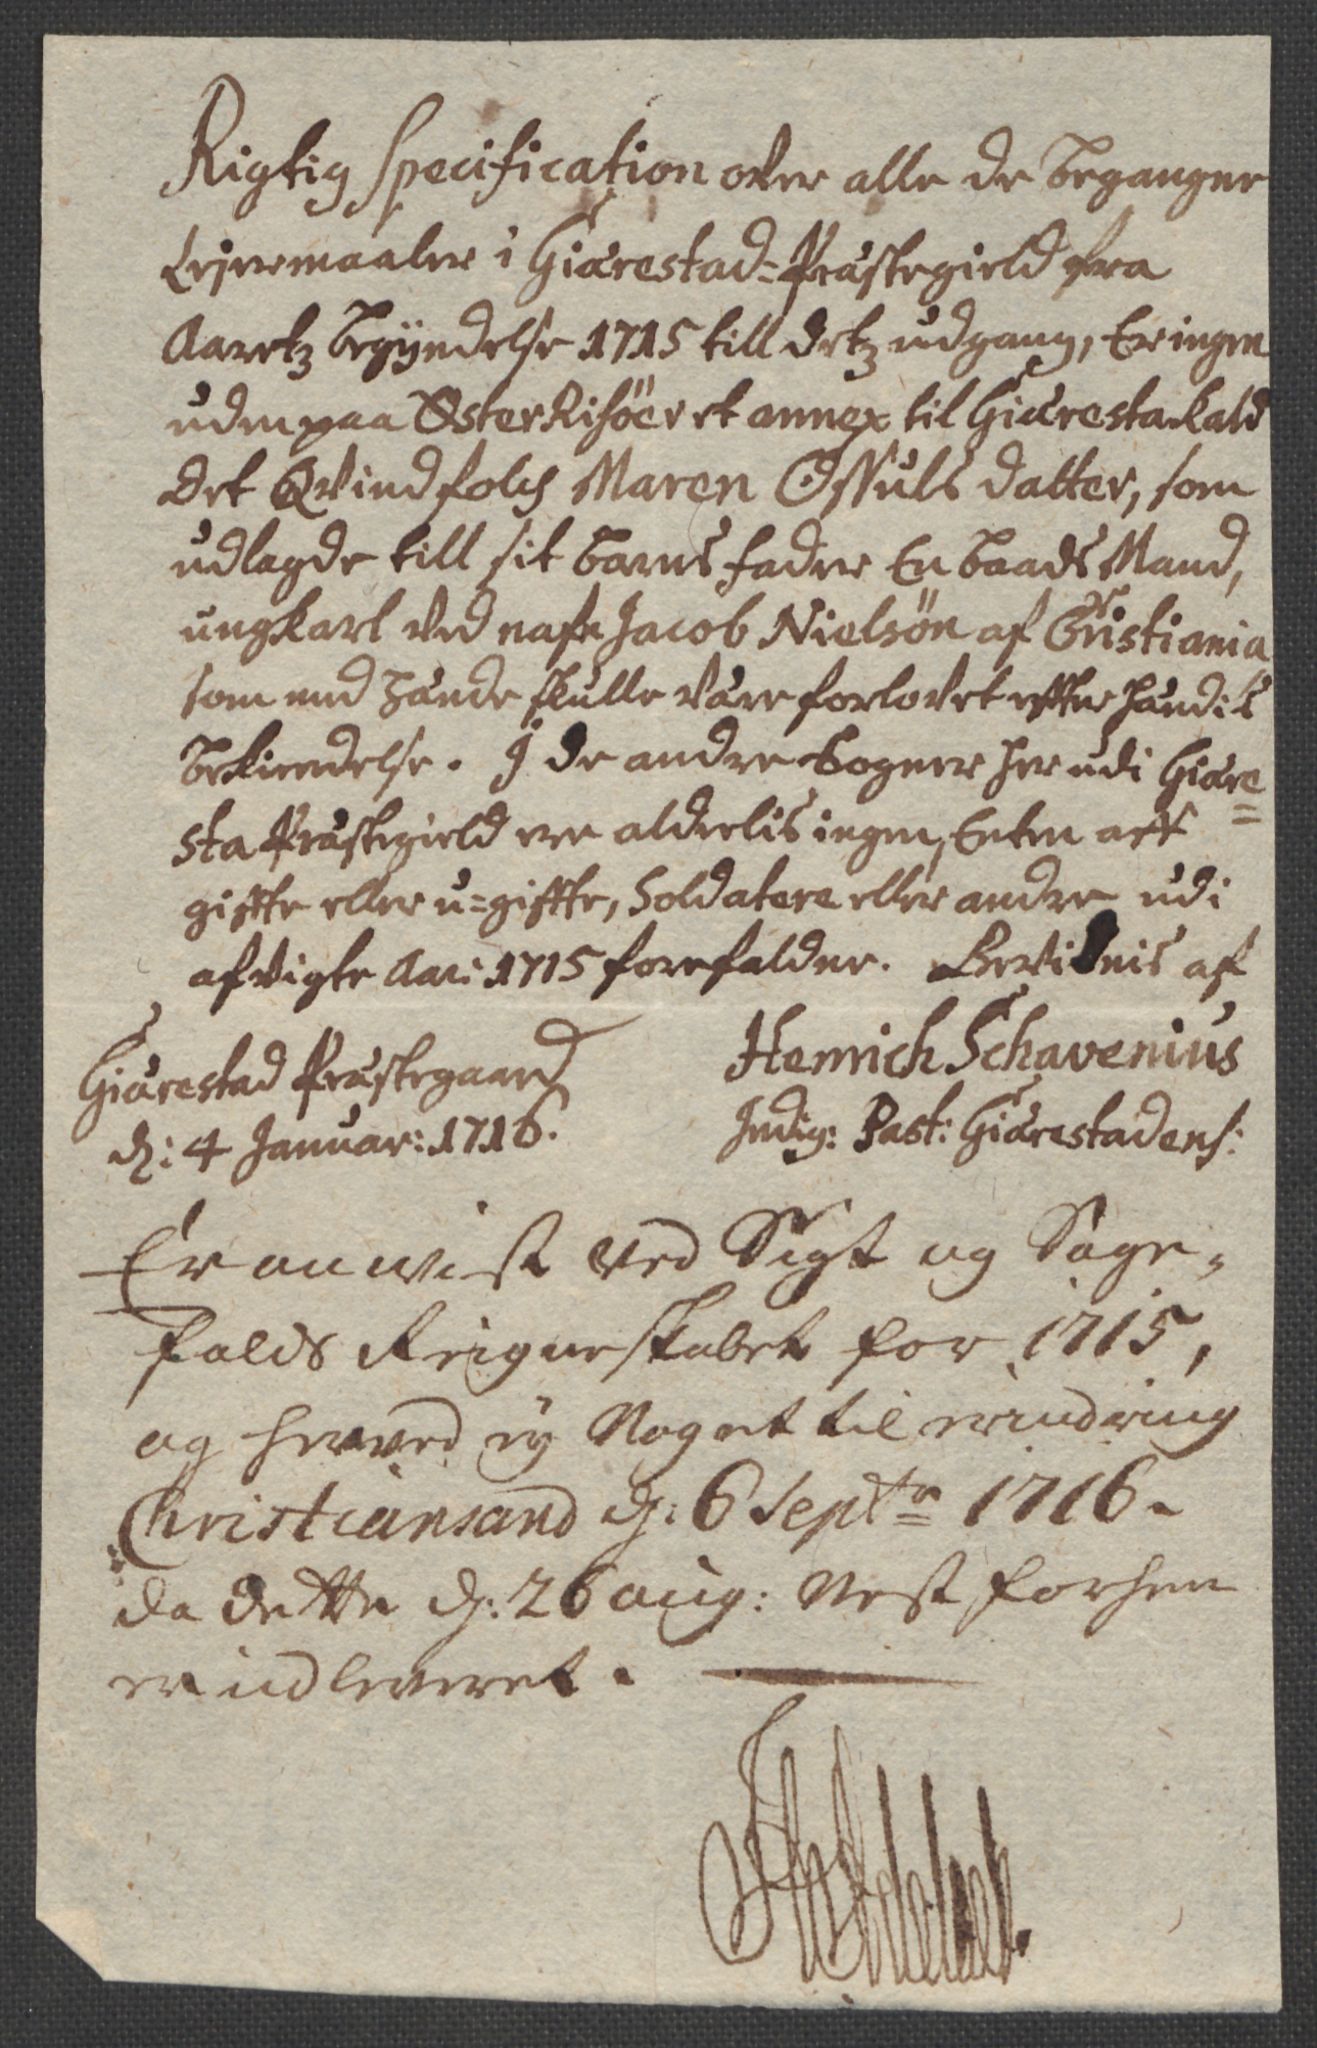 Rigtig Specification over alle de begangne
Leyermaaler i Giærestad-Præstegield fra
Aaretz begÿndelse 1715 till detz udgang, Er ingen
uden paa Øster Risöer et annex til Giæresta Kald
det Qvindfolch Maren Ossuls datter, som
udlagde till sit barns fader En baads Mand,
ungkarl ved nafn Jacob Nielsön af Cristiania
som med hænde skulle være forlovet effter hændis
bekiendelse. J de andre Sogner her udi Giære=
sta Præstegield ere alderlis ingen, Enten aff
giffte eller u=giffte, Soldatere eller andre udi
afvigte Aar: 1715 forefalden. Bevidnis af
Giærestad Præstegaard
d: 4 Januar: 1716.
Henrich Schavenius
Indig: Past: Giærestadens:
Er anvist ved Sigt og Sage-
falds Reigneskabet for 1715,
og herved ey Noget til erindring
Christiansand d: 6 Septr 1716.
da dette d: 26 aug: Nest forhen
er indleveret.